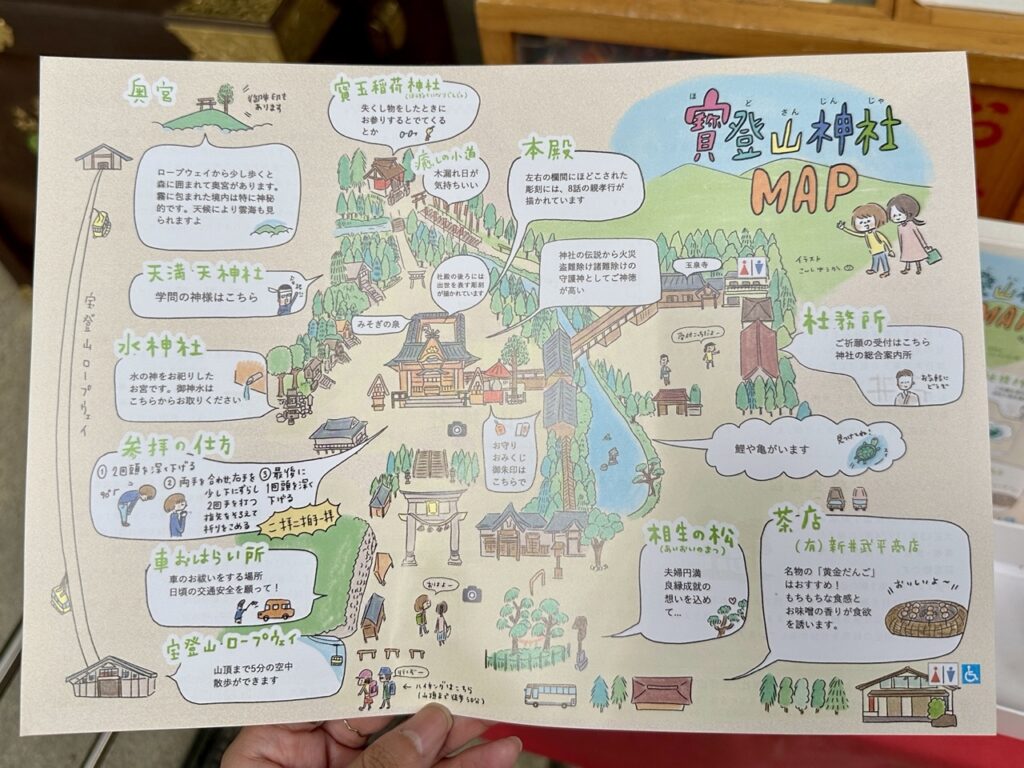 ほ ど さん じん じゃ
寶登山神社
MAP
イラスト
奥宮
御神印も
あります
ロープウェイから少し歩くと
森に囲まれて奥宮があります。
霧に包まれた境内は特に神秘
的です。天候により雲海も見
られますよ
寶玉稲荷神社
失くし物をしたときに
お参りするとでてくる
とか
癒しの小道
木漏れ日が
気持ちいい
本殿
左右の欄間にほどこされた
彫刻には、8話の親孝行が
描かれています
神社の伝説から火災
盗難除け諸難除けの
守護神としてご神徳
が高い
社殿の後ろには
出世を表す彫刻
が描かれています
玉泉寺
天満天神社
学問の神様はこちら
みそぎの泉
水神社
水の神をお祀りした
お宮です。御神水は
こちらからお取りください
社務所
ご祈願の受付はこちら
神社の総合案内所
お気軽に
どうぞ
受付こちらだよー
宝登山ロープウェイ
参拝の仕方
①2回頭を深く下げる
90°
②両手を合わせ右手を
少し下にずらし
2回手を打つ
指先をそろえて
祈りをこめる
③最後に
1回頭を深く
下げる
二拝二拍手一拝
お守り
おみくじ
御朱印は
こちらで
鯉や亀がいます
見つけてね!
車おはらい所
車のお祓いをする場所
日頃の交通安全を願って!
おはよー
相生の松
(あいおいのまつ)
夫婦円満
良縁成就の
想いを込め
て…
茶店
(有)新井武平商店
名物の「黄金だんご」
はおすすめ!
もちもちな食感と
お味噌の香りが食欲
を誘います。
おいしいよ〜
宝登山・ロープウェイ
山頂まで5分の空中
散歩ができます
← ハイキングはこちら
(山頂まで徒歩50分)